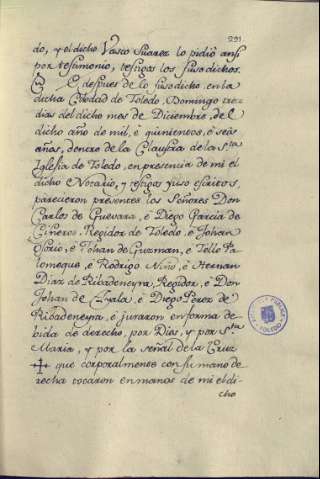 291
do, y el dicho Vasco Suarez lo pidió ansi
por testimonio, testigos los susodichos.
E despues de lo susodicho, en la
dicha Cibdad de Toledo, Domingo trez
dias del dicho mes de Diciembre, de l
dicho año de mil, é quinientos, é seis
años, dentro de la Claustra de la Sta
Iglesia de Toledo, en presencia de mi el
dicho Notario, y testigos yuso escritos,
parecieron presentes los Señores Don
Carlos de Guevara, é Diego Garcia de
Cisneros, Regidor de Toledo, é Johan
Osorio, é Johan de Guzman, é Tello Pa-
lomeque, é Rodrigo Niño, é Hernan
Diaz de Ribadeneyra, Regidor, é Don
Johan de Ayala, é Diego Perez de
Ribadeneyra, é juraron en forma de-
bida de derecho, por Dios, y por Sta
Maria, y por la señal de la Cruz
que corporalmente con su mano de-
recha tocaron en manos de mi el di-
cho
TOLEDO